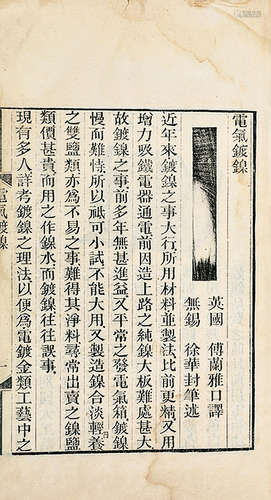 電氣鍍鎳
英國　傅蘭雅口譯
無錫　徐華封筆述
近年來鍍鎳之事大行所用材料並製法比前更精又用
增力吸鐵電器通電前因造上路之純鎳大板難處甚大
故鍍鎳之事前多年無甚進益又平常之發電氣箱鍍鎳
慢而難恃所以祗可小試不能大用又製造鎳合淡輕養
之雙鹽類亦爲不易之事難得其淨料尋常出賣之鎳鹽
類價甚貴而用之作鎳水而鍍鎳往往誤事
現有多人詳考鍍鎳之理法以便爲電鍍金類工藝中之
電氣鍍鎳
一